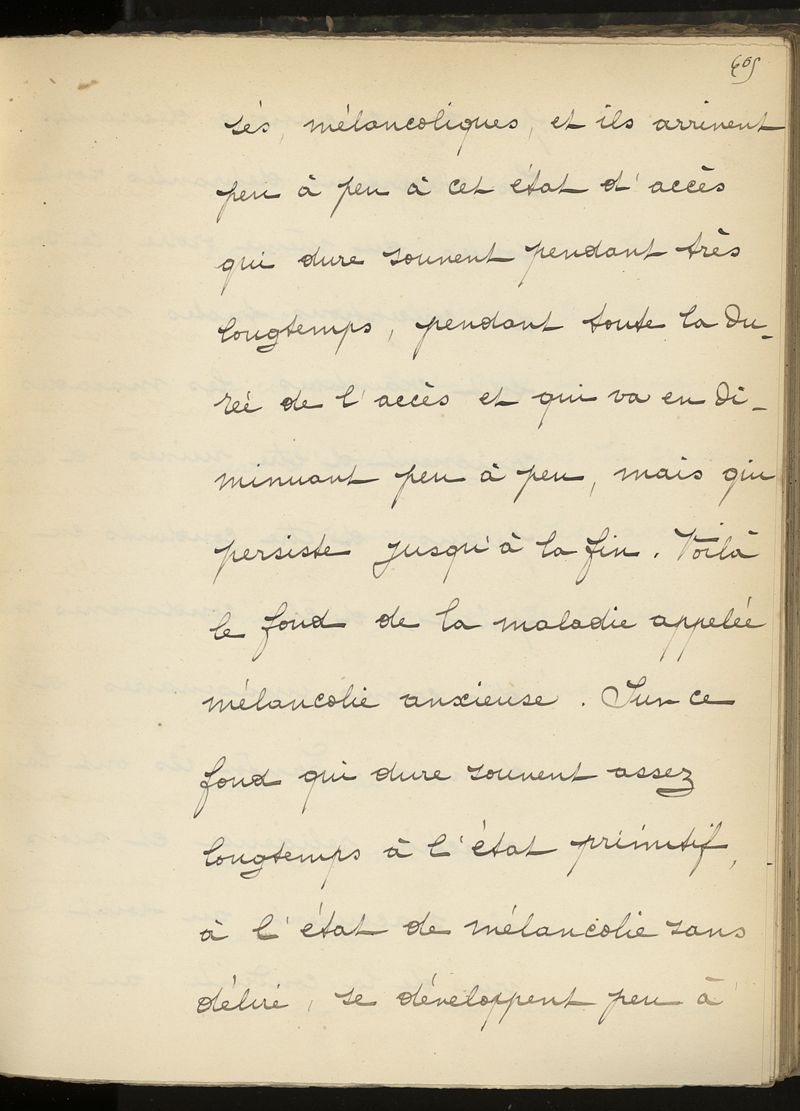 605
sés, mélancoliques, et ils arrivent
peu à peu à cet état d'accès
qui dure souvent pendant très
longtemps, pendant toute la du-
reé de l'accès et qui va en di-
minuant peu à peu, mais qui
persiste jusqu'à la fin. Voilà
le fond de la maladie appelée
mélancolie anxieuse. Sur ce
fond qui dure souvent assez
longtemps à l'état primitif,
à l'état de mélancolie sans
délire, se développent peu à